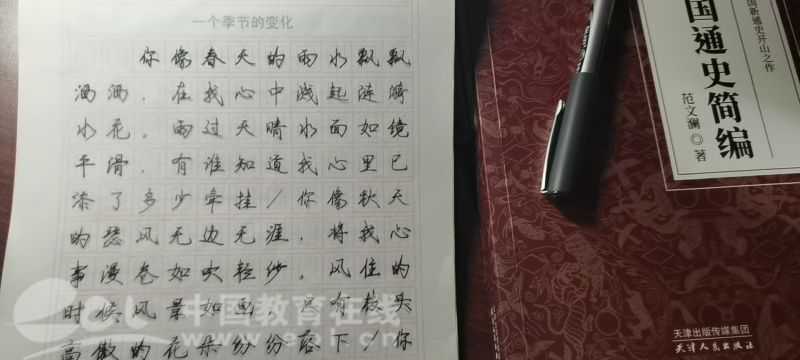 一个季节的变化
你像春天的雨水飘飘
洒洒，在我心中溅起涟漪
水花。雨过天晴水面如镜
平滑，有谁知道我心里已
添了多少牵挂/你像秋天
的瑟风无边无涯，将我心
事漫卷如吹轻纱。风住的
时候风景如画，只有枝头
高傲的花朵纷纷落下/你
国新通史开山之作
国通史简编
范文澜◎著
天津出版传媒集团
天津人民出版社
中国教育在线